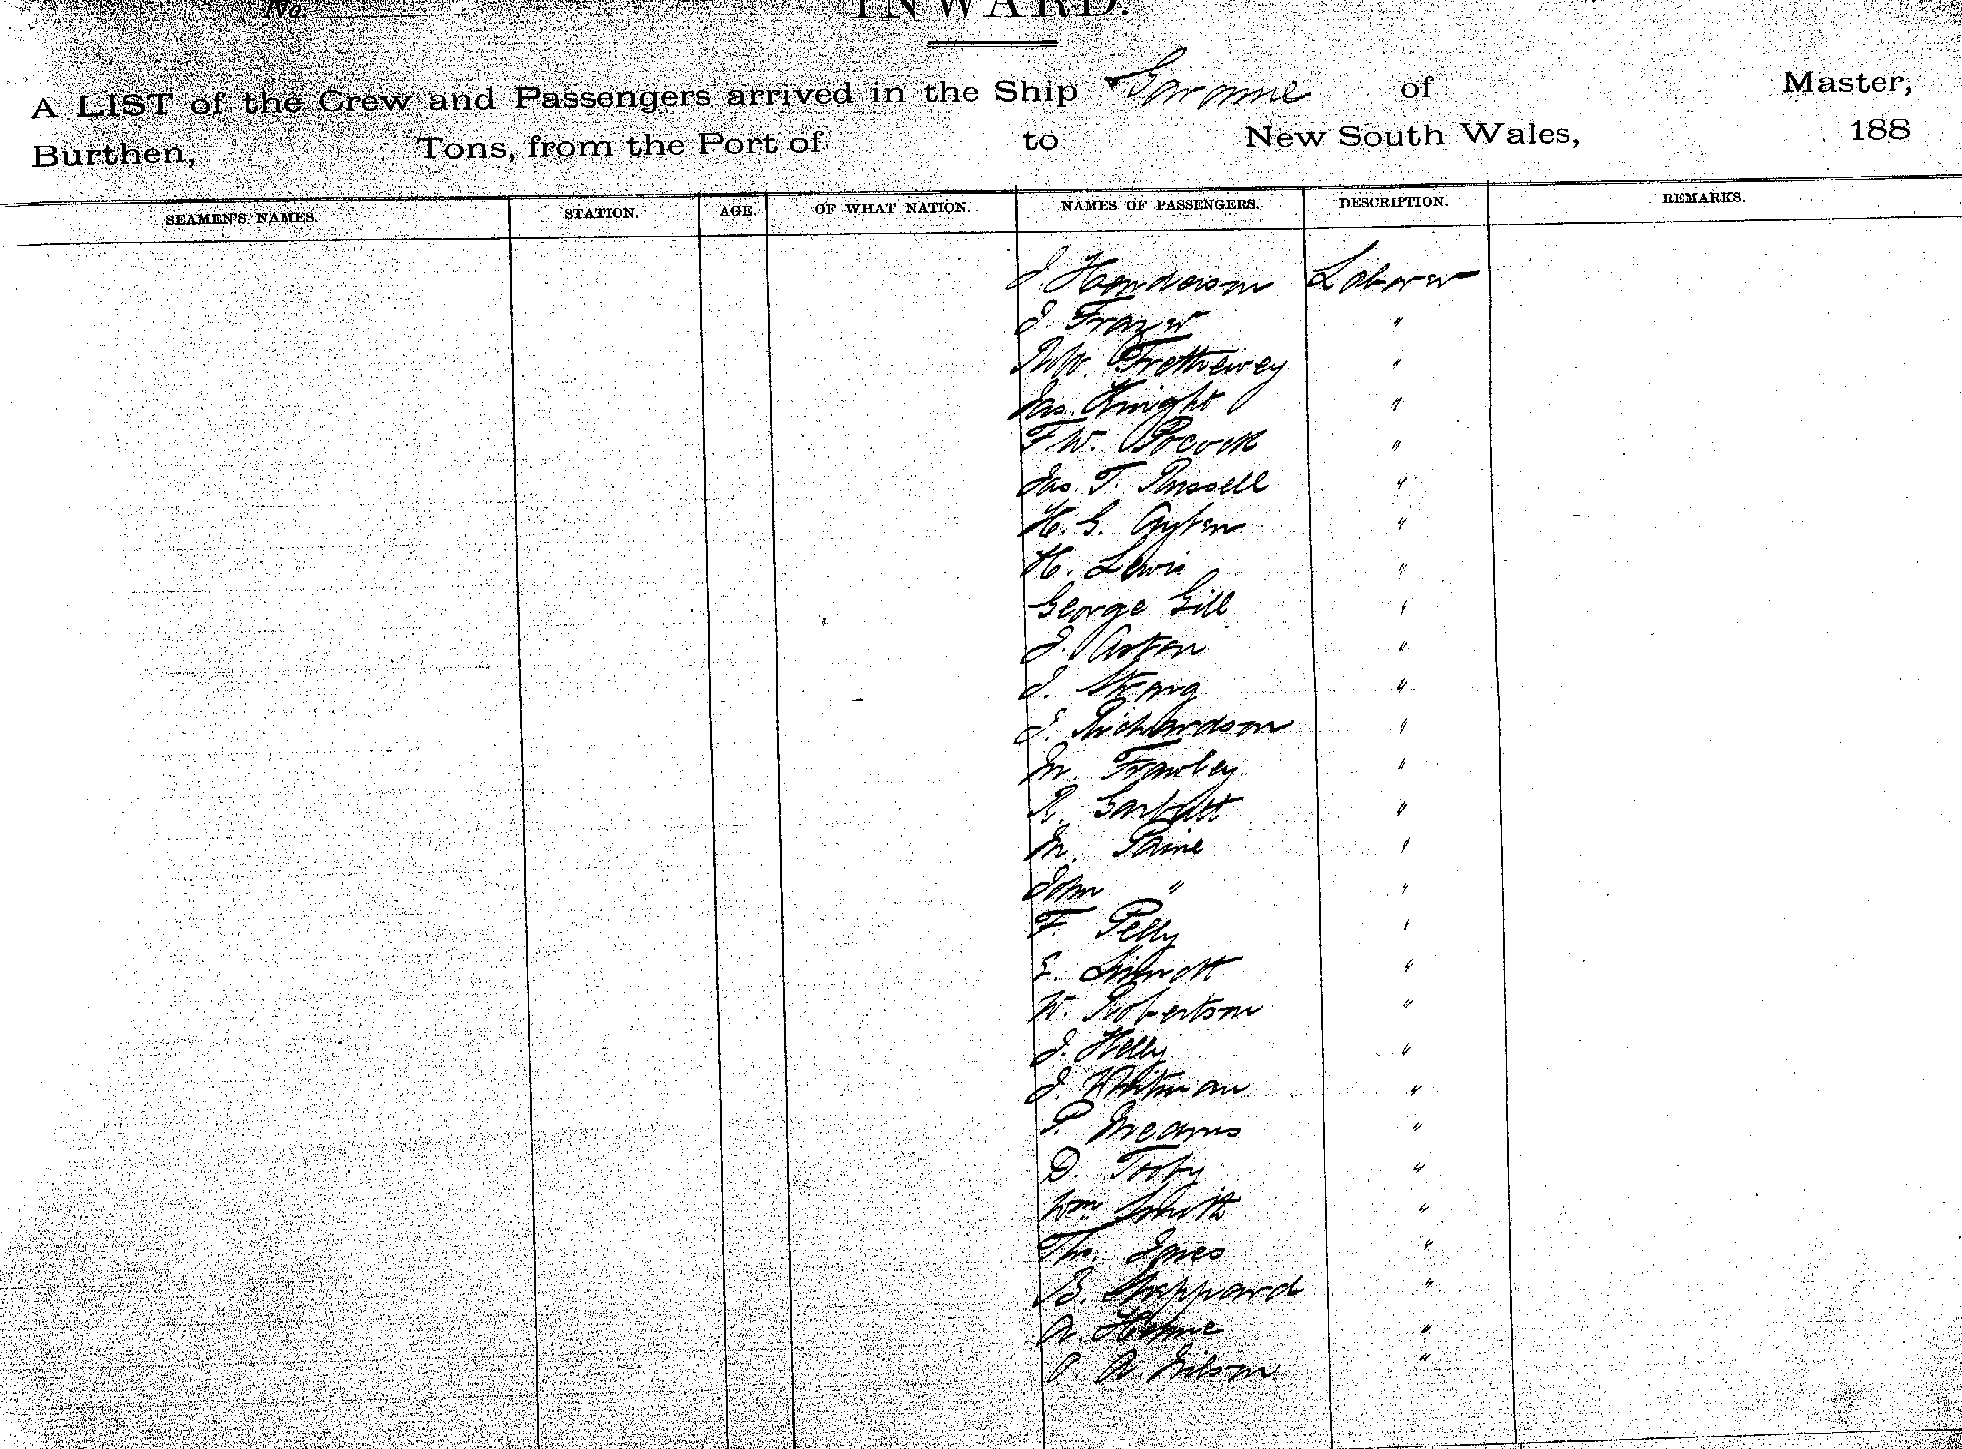 No.
INWARD.
A LIST of the Crew and Passengers arrived in the Ship Garonne of Master,
Burthen, Tons, from the Port of to New South Wales, 188
SEAMEN'S NAMES. STATION. AGE. OF WHAT NATION. NAMES OF PASSENGERS. DESCRIPTION. REMARKS.
J Henderson Laborer
J. Frazer "
Trethewey "
Jas. Knight "
F W. Pocock "
Jas. T. Russell "
H. G. "
H. Lewis "
George Gill "
J. "
J. "
J. Richardson "
M. Frawley "
R. Garbutt "
M. Paine "
John " "
F. Pelly "
E. "
W. Robertson "
J. Kelly "
J. Whitman "
P. Mearns "
D. "
Wm Smith "
Thos. Jones "
B. Sheppard "
A. "
A. Wilson "